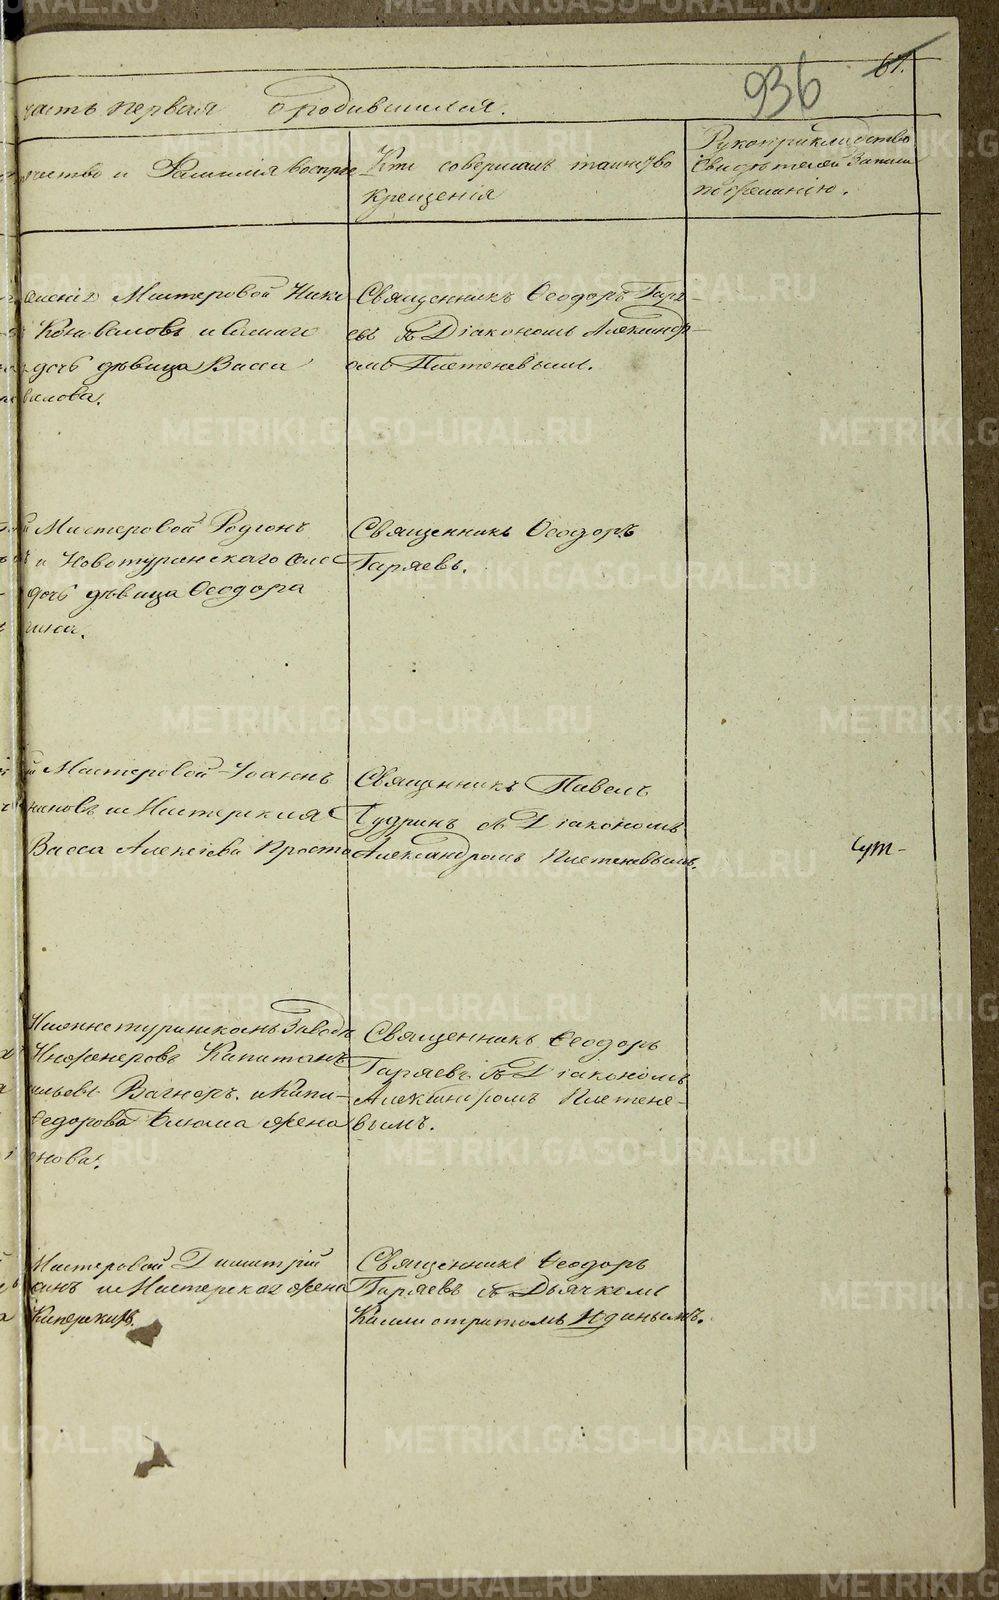 936
61.
часть первая о родившихся.
чество и Фамилія воспрі
Кто совершалъ таинство
крещенія
Рукоприкладство
свидѣтелей записи
по желанію.
Мастеровой Ники
Коновалова и
дочь дѣвица Васса
валова.
Священникъ Ѳеодоръ Гаря-
евъ съ Діакономъ Александр-
омъ Плетеневымъ.
Мастеровой Родіонъ
и Новотуринскаго
дочь дѣвица Ѳеодора
ина.
Священникъ Ѳеодоръ
Гаряевъ.
Мастеровой Іоаннъ
пановъ и Мастерская
Васса Алексіева
Священникъ Павелъ
Чудринъ съ Діакономъ
Александромъ Плетеневымъ.
Нижнетуринскаго Завода
Инженеровъ Капитанъ
ильевъ Вагнеръ и Капи-
Ѳедорова жена
нова.
Священникъ Ѳеодоръ
Гаряевъ съ Діакономъ
Александромъ Плетене-
вымъ.
Мастеровой Димитрій
инъ и Мастерская жена
Священникъ Ѳеодоръ
Гаряевъ съ Дьячкомъ
Каллистратомъ Юдинымъ.
METRIKI.GASO-URAL.RU